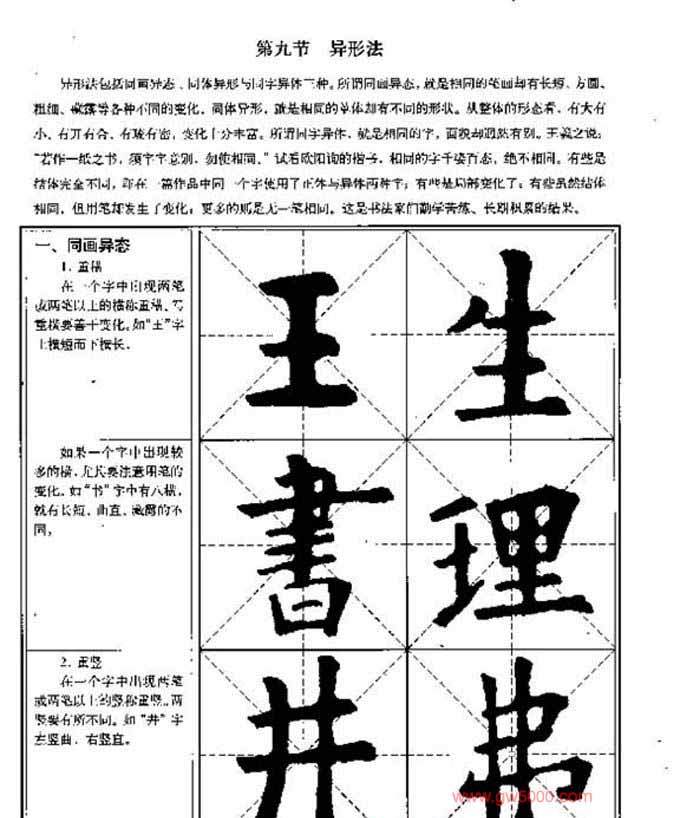 第九节 异形法
异形法包括同画异态、同体异形与同字异体三种。所谓同画异态，就是相同的笔画却有长短、方圆、
粗细、藏露等各种不同的变化。同体异形，就是相同的单体却有不同的形状。从整体的形态看，有大有
小、有开有合、有疏有密，变化十分丰富。所谓同字异体，就是相同的字，面貌却迥然有别。王羲之说：
“若作一纸之书，须字字意别，勿使相同。”试看欧阳询的楷书，相同的字千姿百态，绝不相同。有些是
结体完全不同，即在一篇作品中同一个字使用了正体与异体两种字；有些是局部变化了；有些虽然结体
相同，但用笔却发生了变化；更多的则是无一笔相同。这是书法家们勤学苦练、长期积累的结果。
一、同画异态
1. 重横
在一个字中出现两笔
或两笔以上的横称重横。写
重横要善于变化。如“王”字
上横短而下横长。
王 生
如果一个字中出现较
多的横，尤其要注意用笔的
变化。如“书”字中有八横，
就有长短、曲直、藏露的不
同。
書 理
2. 重竖
在一个字中出现两笔
或两笔以上的竖称重竖。两
竖要有所不同。如“井”字
左竖曲，右竖直。
井 弗
www.gw5000.com